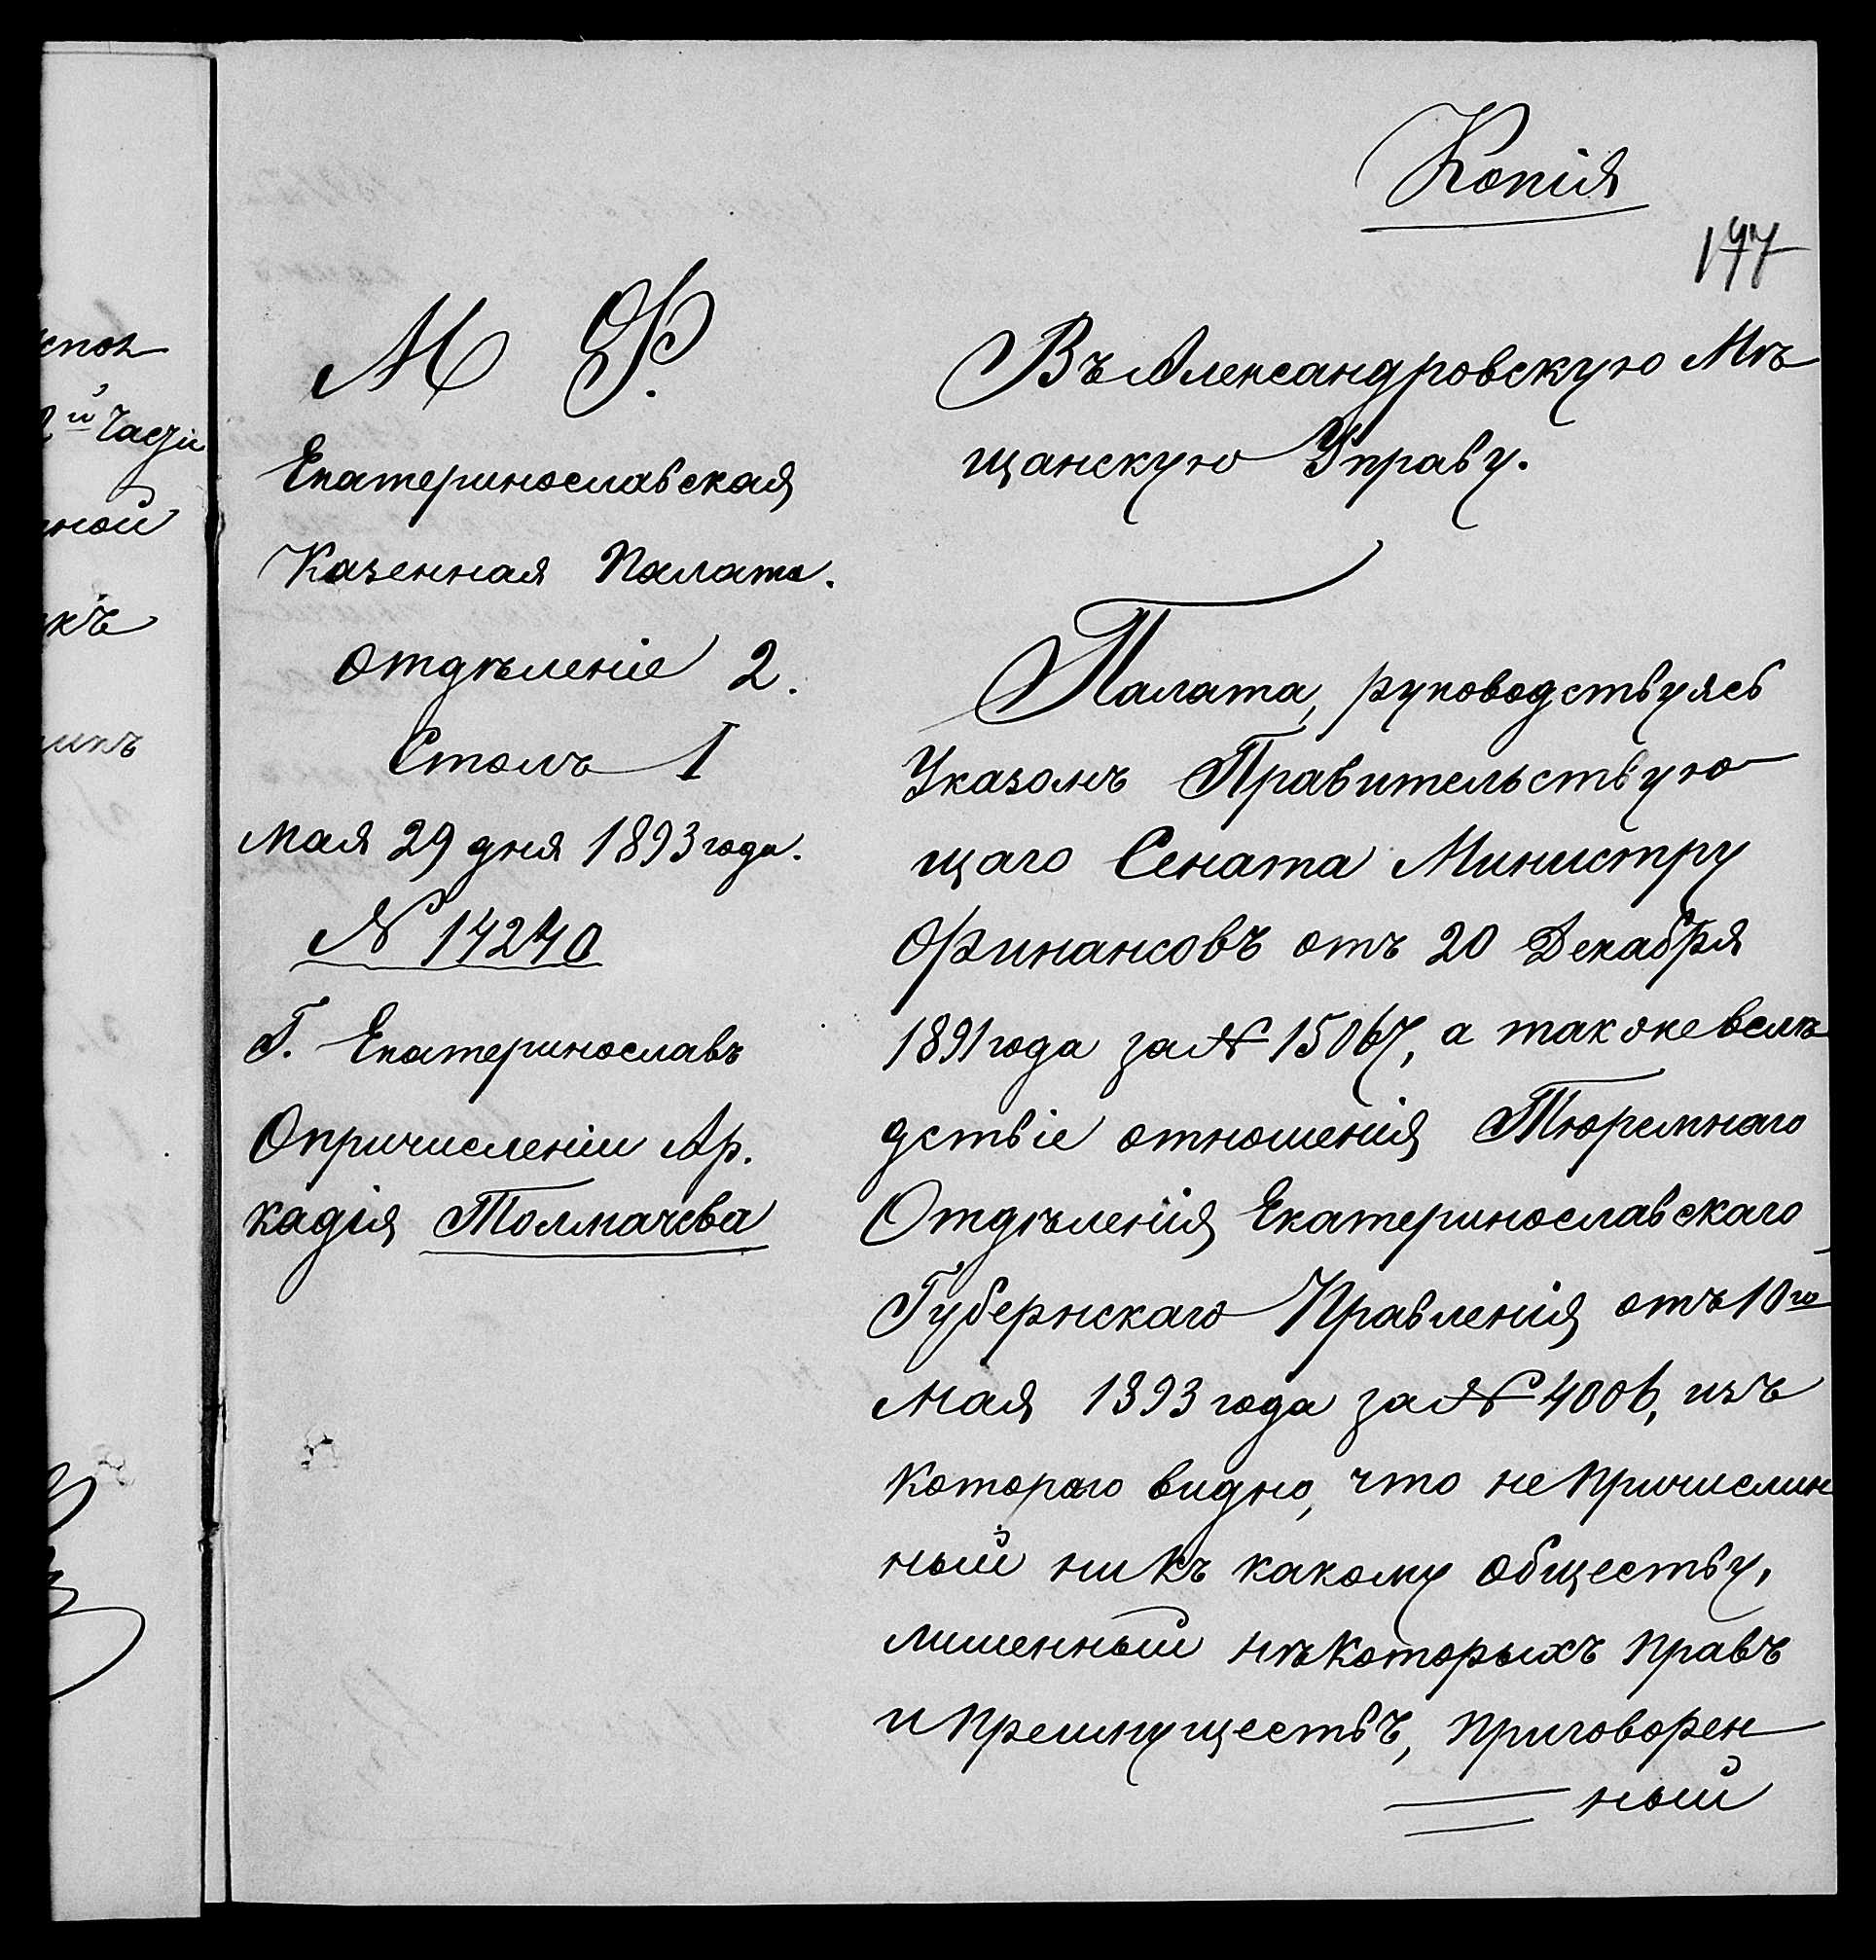 Копія
147
М Ф.
Екатеринославская
Казенная Палата.
Отдѣленіе 2.
Столъ I
Мая 29 дня 1893 года.
№ 14240
Г. Екатеринославъ
О причисленіи Ар.
кадія Толмачева
Въ Александровскую Мѣ
щанскую Управу.
Палата, руководствуясь
Указомъ Правительствую
щаго Сената Министру
Финансовъ отъ 20 Декабря
1891 года за № 15067, а также вслѣ
дствіе отношенія Тюремнаго
Отдѣленія Екатеринославскаго
Губернскаго Правленія отъ 10го
Мая 1893 года за № 4006, изъ
котораго видно, что не причислин
ный ни къ какому обществу,
лишенный нѣкоторыхъ правъ
и преимуществъ, приговорен
ный
2й Части
ной
къ